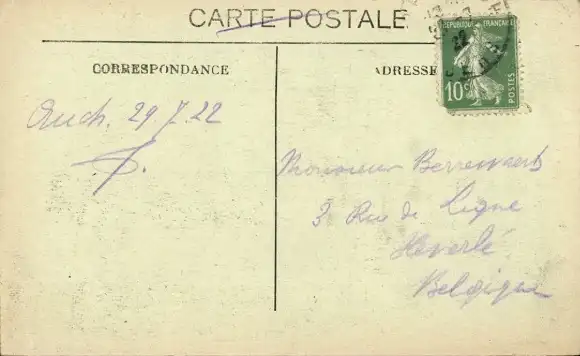 CARTE POSTALE
CORRESPONDANCE
ADRESSE
REPUBLIQUE FRANÇAISE
10c
Auch. 29.7.22
Monsieur
3 Rue de Ligne
Heverlé
Belgique